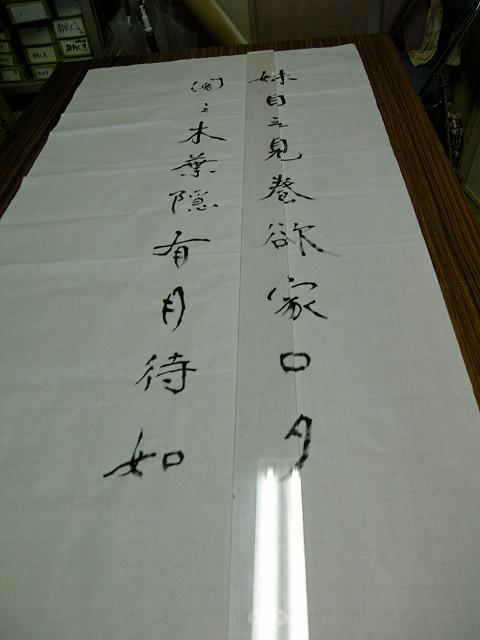 妹目之見巻欲家口夕
闇之木葉隠有月待如